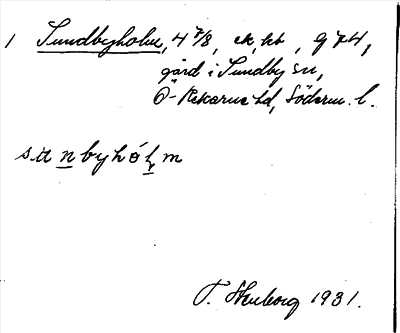 1 Sundbyholm, 4 7/8, ek. kb, G 74,
gård i Sundby sn,
Ö-Rekarne hd, Söderm. l.
su n byhólm
T. 1931.